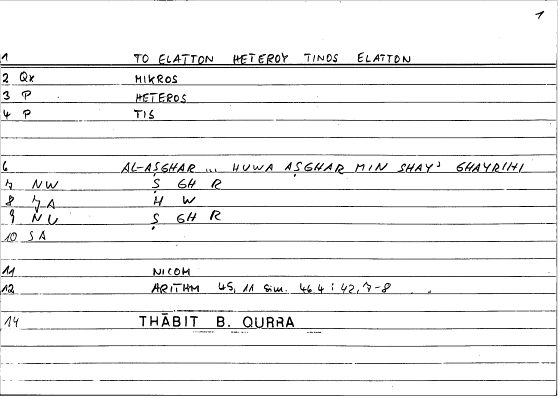 1
1 TO ELATTON HETEROY TINOS ELATTON
2 Qx MIKROS
3 P HETEROS
4 P TIS
6 AL-AṢGHAR ... HUWA AṢGHAR MIN SHAYʾ GHAYRIHI
7 NW Ṣ GH R
8 7A H W
9 NU Ṣ GH R
10 SA
11 NICOM
12 ARITHM 45, 11 sim. 46.4; 42, 7-8
14 THĀBIT B. QURRA